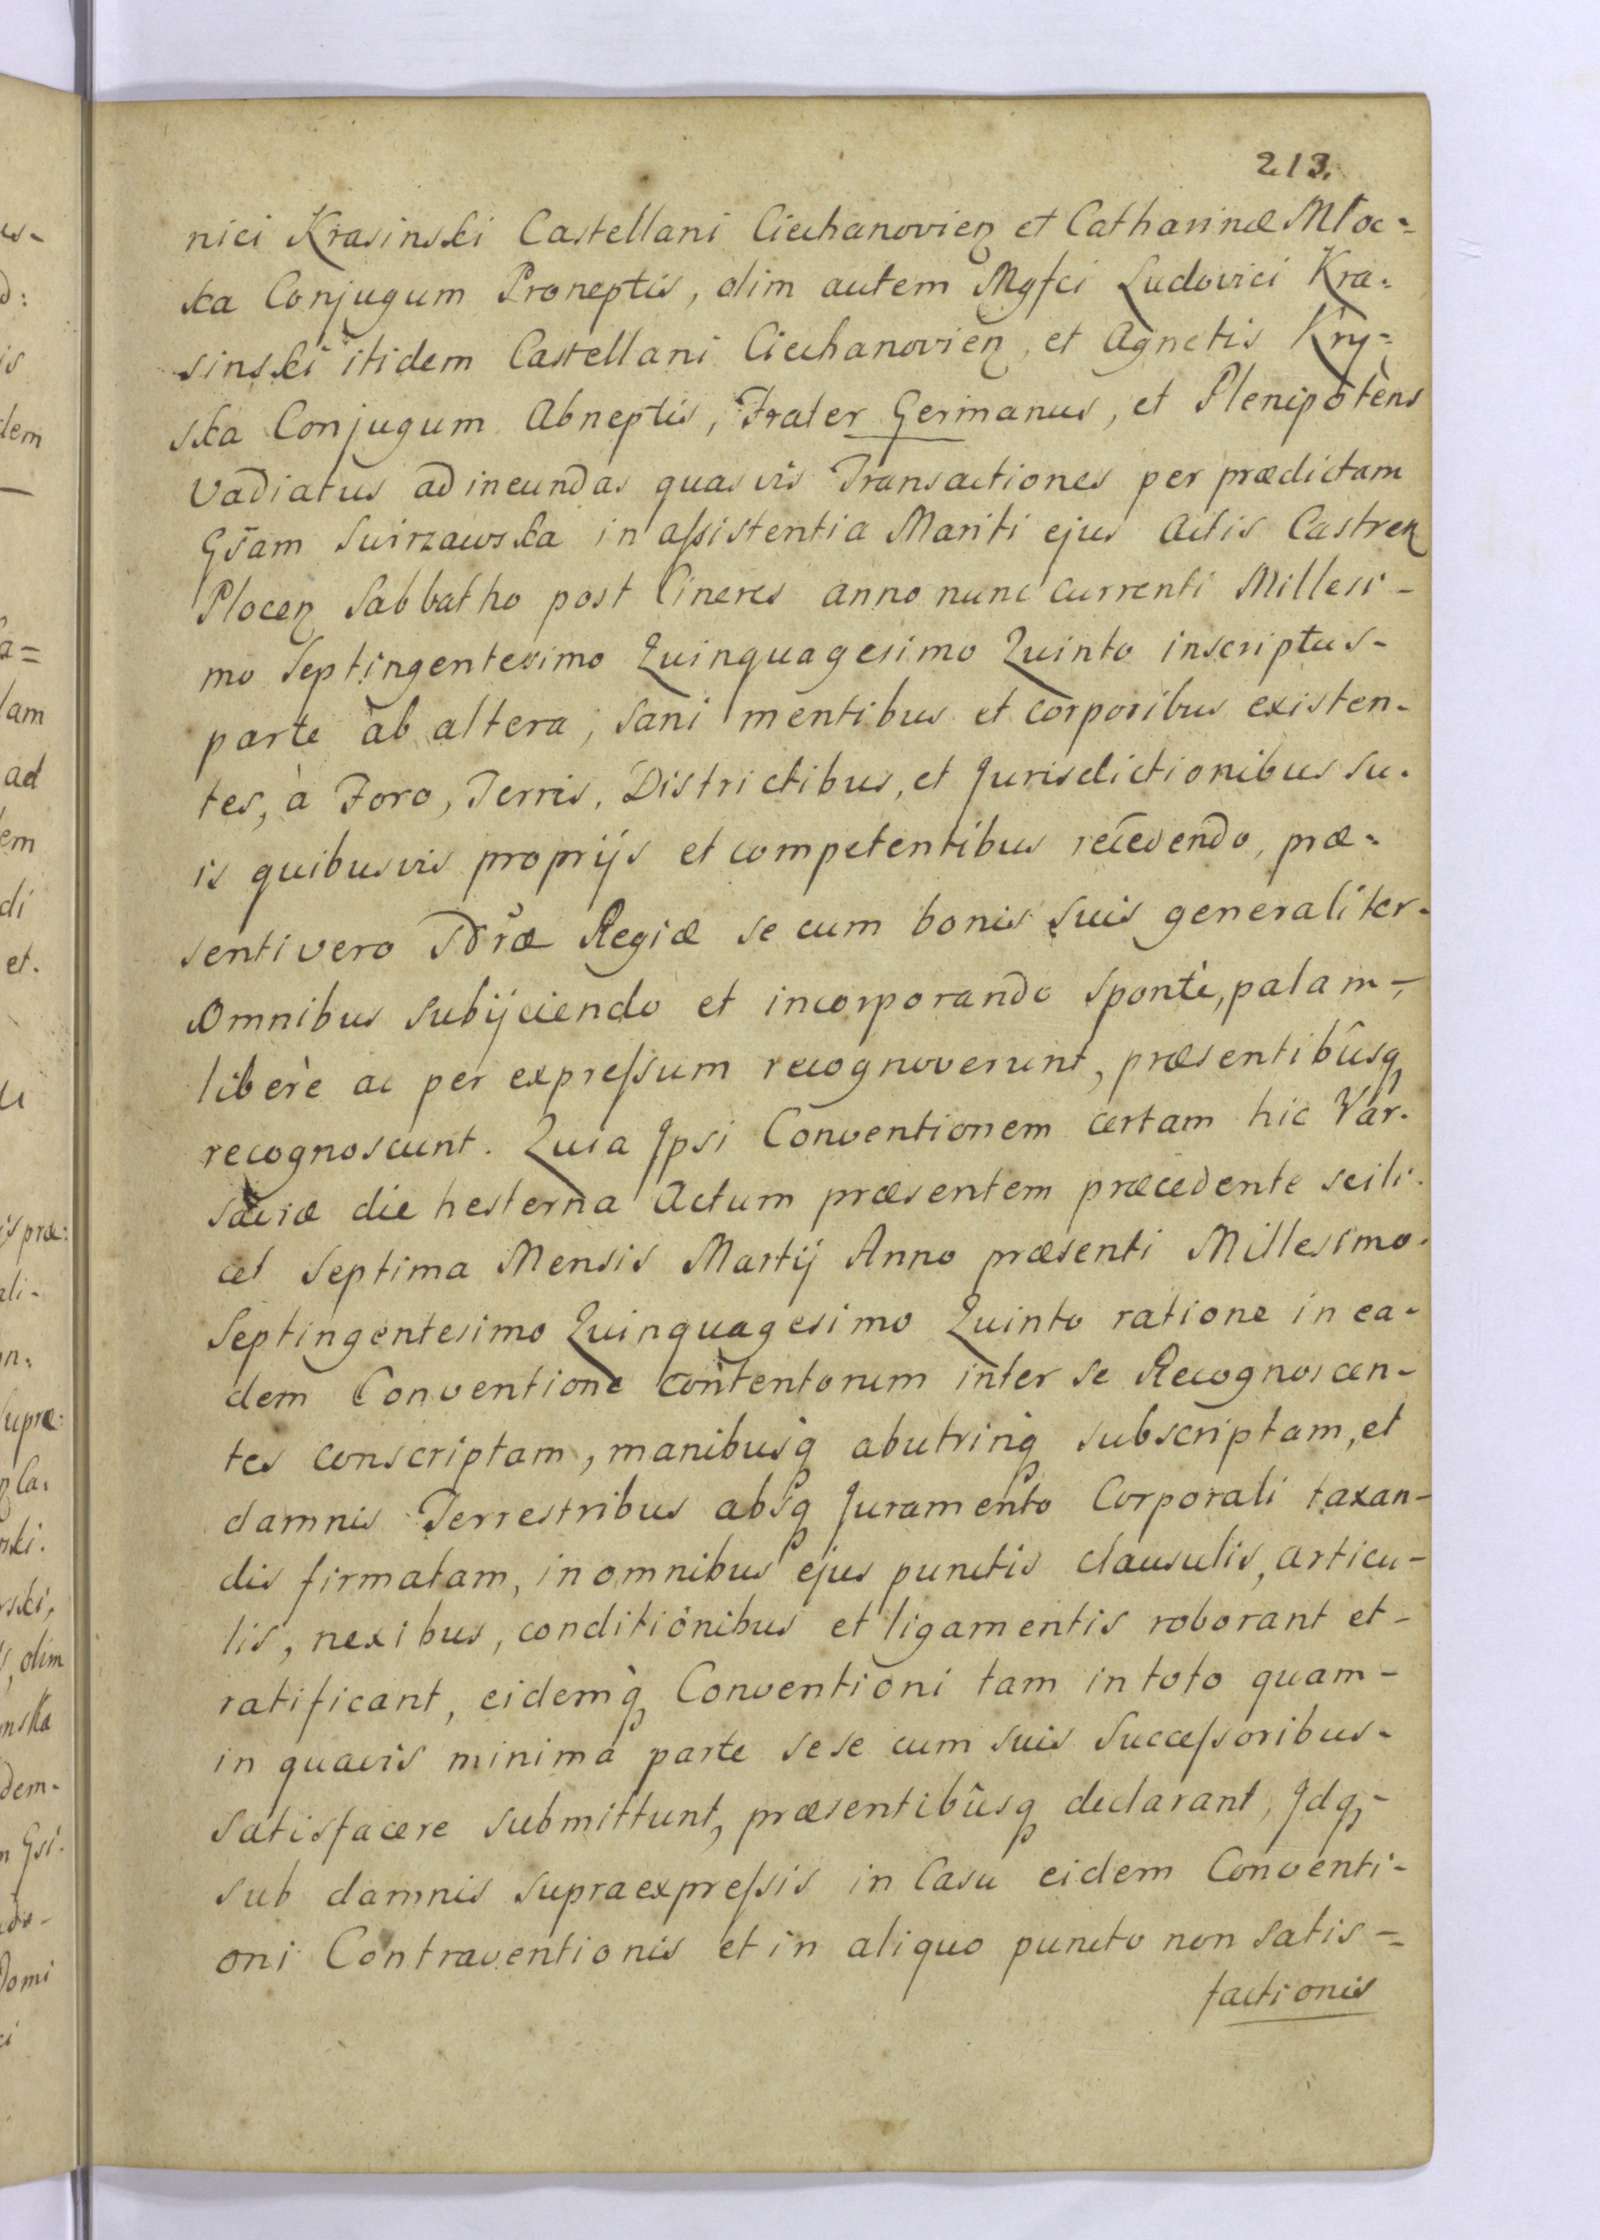 213.
nici Krasinski Castellani Ciechanovien et Catharinæ Młoc=
ka Conjugum Proneptis, olim autem Mgfci Ludovici Kra=
sinski itidem Castellani Ciechanovien, et Agnetis Kry=
ska Conjugum Abneptis, Frater Germanus, et Plenipotens
Vadiatus ad ineundas quasvis Transactiones per prædictam
Gsam Swirzawska in assistentia Mariti ejus Actis Castren
Plocen Sabbatho post Cineres anno nunc currenti Millesi-
mo Septingentesimo Quinquagesimo Quinto inscriptus-
parte ab altera, sani mentibus et corporibus existen-
tes, à Foro, Terris, Districtibus, et Jurisdictionibus su-
is quibusvis proprijs et competentibus recedendo, præ=
senti vero Regiæ se cum bonis suis generaliter-
Omnibus subijciendo et incorporando spontè, palam-,
liberè ac per expressum recognoverunt, præsentibûsq
recognoscunt. Quia Ipsi Conventionem certam hic Var-
saviæ die hesterna Actum præsentem præcedente scili-
cet Septima Mensis Martij Anno præsenti Millesimo-
Septingentesimo Quinquagesimo Quinto ratione in ea-
dem Conventione contentorum inter se Recognoscen-
tes conscriptam, manibusq abutrinq subscriptam, et
damnis Terrestribus absq Juramento Corporali taxan-
dis firmatam, in omnibus ejus punctis clausulis, articu-
lis, nexibus, conditionibus et ligamentis roborant et-
ratificant, eidemq Conventioni tam in toto quam-
in quavis minima parte sese cum suis Successoribus-
satisfacere submittunt, præsentibûsq declarant, Idq-
sub damnis supraexpressis in Casu eidem Conventi-
oni Contraventionis et in aliquo puncto non satis-=
factionis